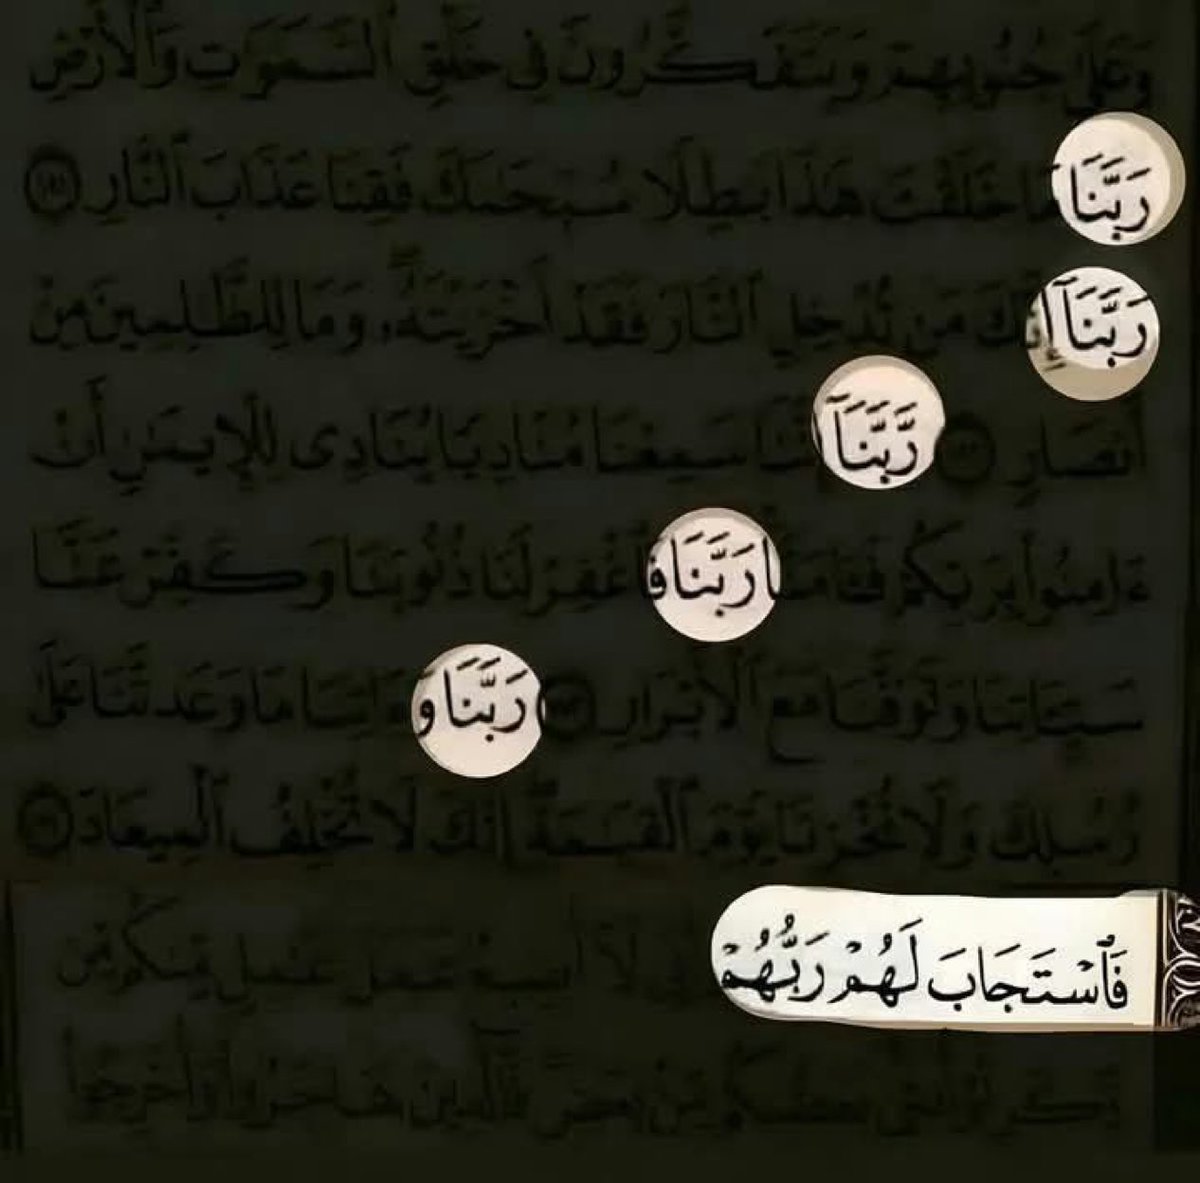 وَعَلَىٰ جُنُوبِهِمْ وَيَتَفَكَّرُونَ فِي خَلْقِ ٱلسَّمَٰوَٰتِ وَٱلْأَرْضِ
رَبَّنَا مَا خَلَقْتَ هَٰذَا بَٰطِلًا سُبْحَٰنَكَ فَقِنَا عَذَابَ ٱلنَّارِ ١٩١
رَبَّنَآ إِنَّكَ مَن تُدْخِلِ ٱلنَّارَ فَقَدْ أَخْزَيْتَهُۥ وَمَا لِلظَّٰلِمِينَ مِنْ
أَنصَارٍ ١٩٢ رَّبَّنَآ إِنَّنَا سَمِعْنَا مُنَادِيًا يُنَادِى لِلْإِيمَٰنِ أَنْ
ءَامِنُوا۟ بِرَبِّكُمْ فَـَٔامَنَّا رَبَّنَا فَٱغْفِرْ لَنَا ذُنُوبَنَا وَكَفِّرْ عَنَّا
سَيِّـَٔاتِنَا وَتَوَفَّنَا مَعَ ٱلْأَبْرَارِ ١٩٣ رَبَّنَا وَءَاتِنَا مَا وَعَدتَّنَا عَلَىٰ
رُسُلِكَ وَلَا تُخْزِنَا يَوْمَ ٱلْقِيَٰمَةِ إِنَّكَ لَا تُخْلِفُ ٱلْمِيعَادَ ١٩٤
فَٱسْتَجَابَ لَهُمْ رَبُّهُمْ أَنِّى لَآ أُضِيعُ عَمَلَ عَٰمِلٍ مِّنكُم مِّن
ذَكَرٍ أَوْ أُنثَىٰ بَعْضُكُم مِّنۢ بَعْضٍ فَٱلَّذِينَ هَاجَرُوا۟ وَأُخْرِجُوا۟